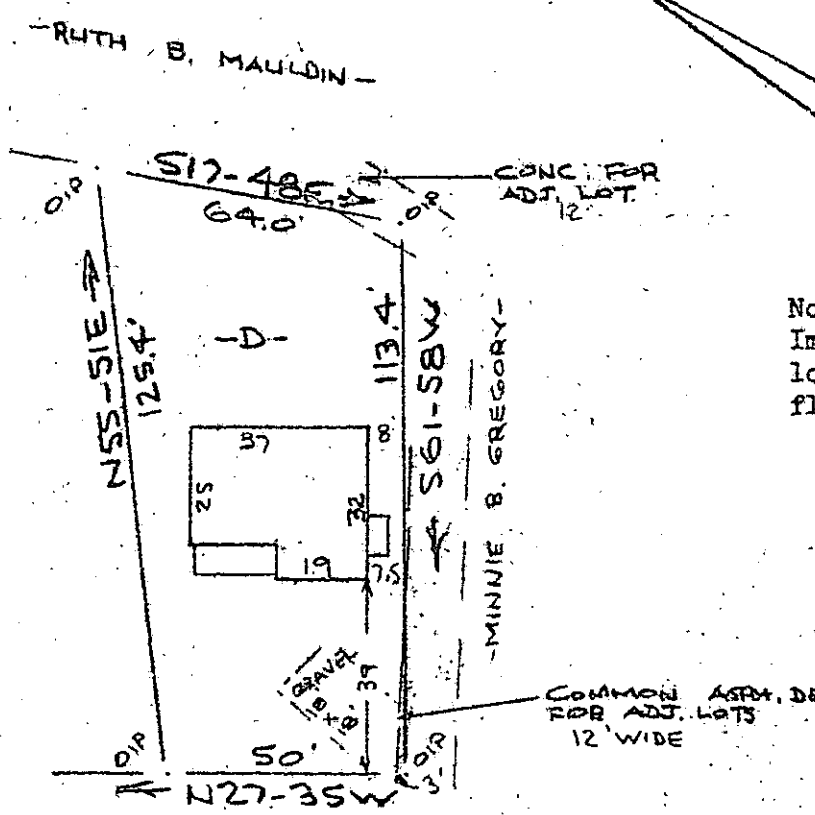 -RUTH B. MAULDIN-
S17-48E
64.0'
CONC. FOR
ADJ. LOT.
12'
O.I.P.
O.I.P.
N55-51E
125.4'
-D-
113.4'
S61-58W
-MINNIE B. GREGORY-
No
Im
lo
fl
37
8
25
32
19
7.5
39
GRAVEL
18 x 18'
COMMON ASPH. DR
FOR ADJ. LOTS
12' WIDE
O.I.P.
50'
O.I.P.
3'
N27-35W